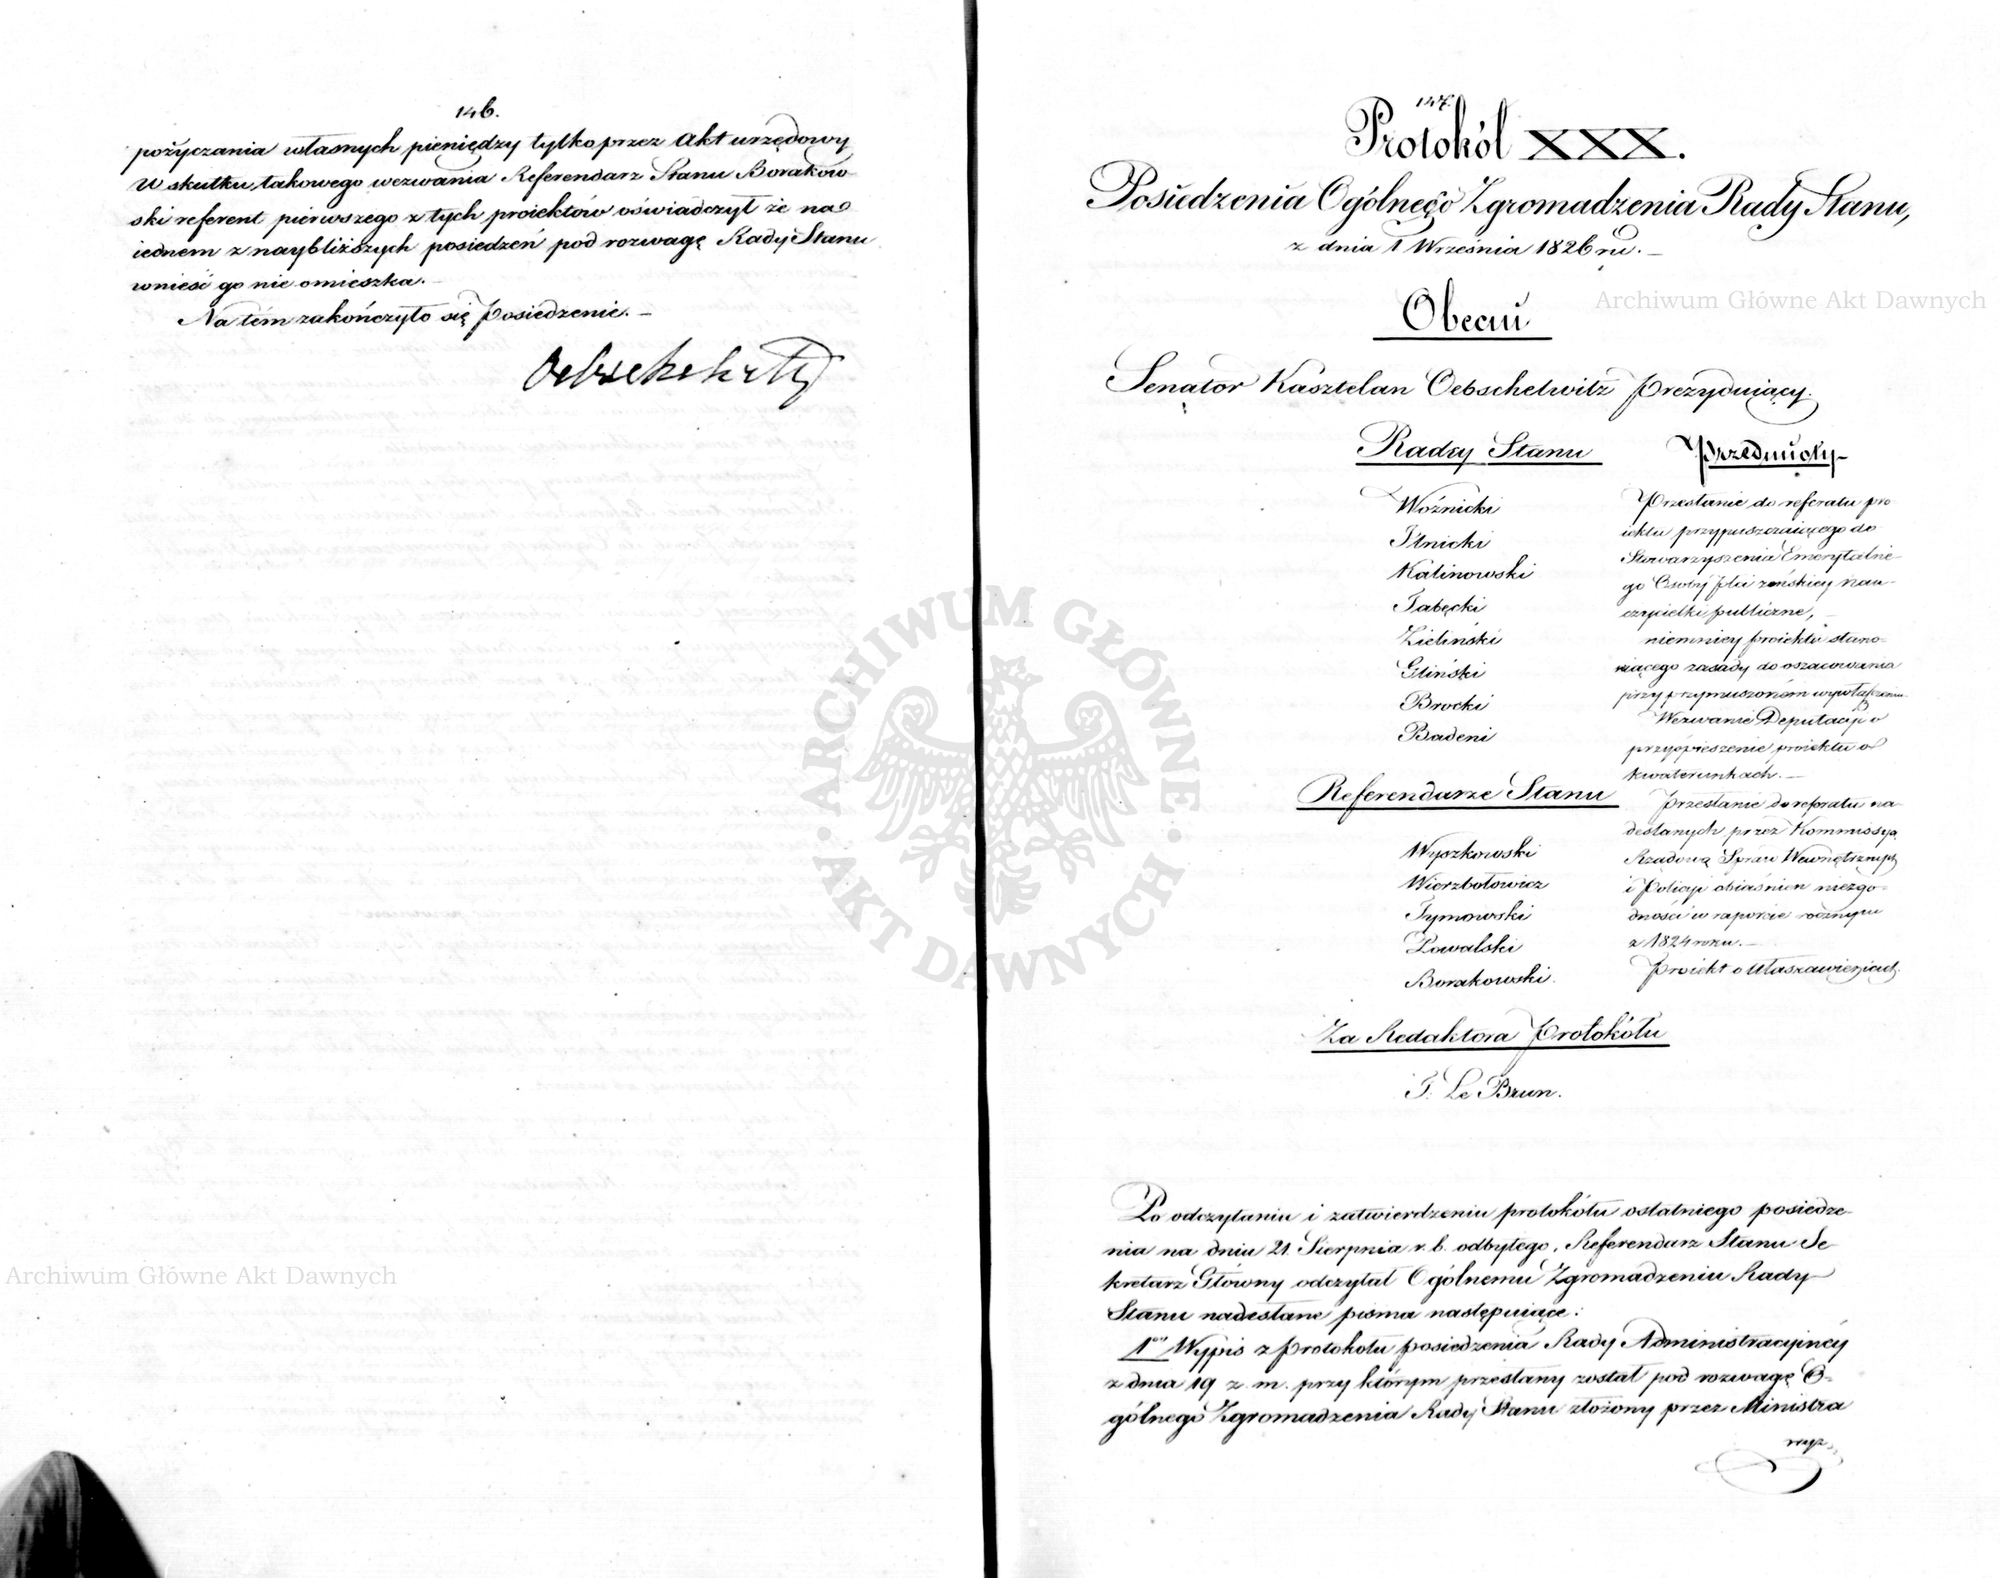 146.
pożyczania własnych pieniędzy tylko przez Akt urzędowy
W skutku takowego wezwania Referendarz Stanu Borakow-
ski referent pierwszego z tych proiektów oświadczył że na
iednem z naybliższych posiedzeń pod rozwagę Rady Stanu
wnieść go nie omieszka.
Na tém zakończyło się Posiedzenie.
147.
Protokół XXX.
Posiedzenia Ogólnego Zgromadzenia Rady Stanu,
z dnia 1 Września 1826 ru.
Obecni
Senator Kasztelan Oebschelwitz Prezyduiący.
Radcy Stanu
Woźnicki
Kalinowski
Zieliński
Gliński
Brocki
Badeni
Referendarze Stanu
Wyszkowski
Wierzbołowicz
Tymowski
Kowalski
Borakowski.
Za Redaktora Protokółu
Le Brun.
Przedmioty
Przesłanie do referatu pro
iektu przypuszczaiącego do
Stowarzyszenia Emerytalne-
go Osoby płci żeńskiey nau-
czycielki publiczne,
niemniey proiektu stano-
wiącego zasady do oszacowania
przy przymuszoném wywłaszczeniu
Wezwanie Deputacji o
przyśpieszenie proiektu o
kwaterunkach.
Przesłanie do referatu na-
desłanych przez Kommissyą
Rządową Spraw Wewnętrznych
i Policyi obiaśnień niezgo-
dności w raporcie rocznym
z 1824 roku.
Proiekt o Ułaskawieniach.
Po odczytaniu i zatwierdzeniu protokółu ostatniego posiedze-
nia na dniu 21. Sierpnia r. b. odbytego, Referendarz Stanu Se-
kretarz Główny odczytał Ogólnemu Zgromadzeniu Rady
Stanu nadesłane pisma następuiące:
1o Wypis z protokołu posiedzenia Rady Administracyinéy
z dnia 19 z. m. przy którym przesłany został pod rozwagę O-
gólnego Zgromadzenia Rady Stanu złożony przez Ministra
Archiwum Główne Akt Dawnych
Archiwum Główne Akt Dawnych
ARCHIWUM GŁÓWNE
AKT DAWNYCH